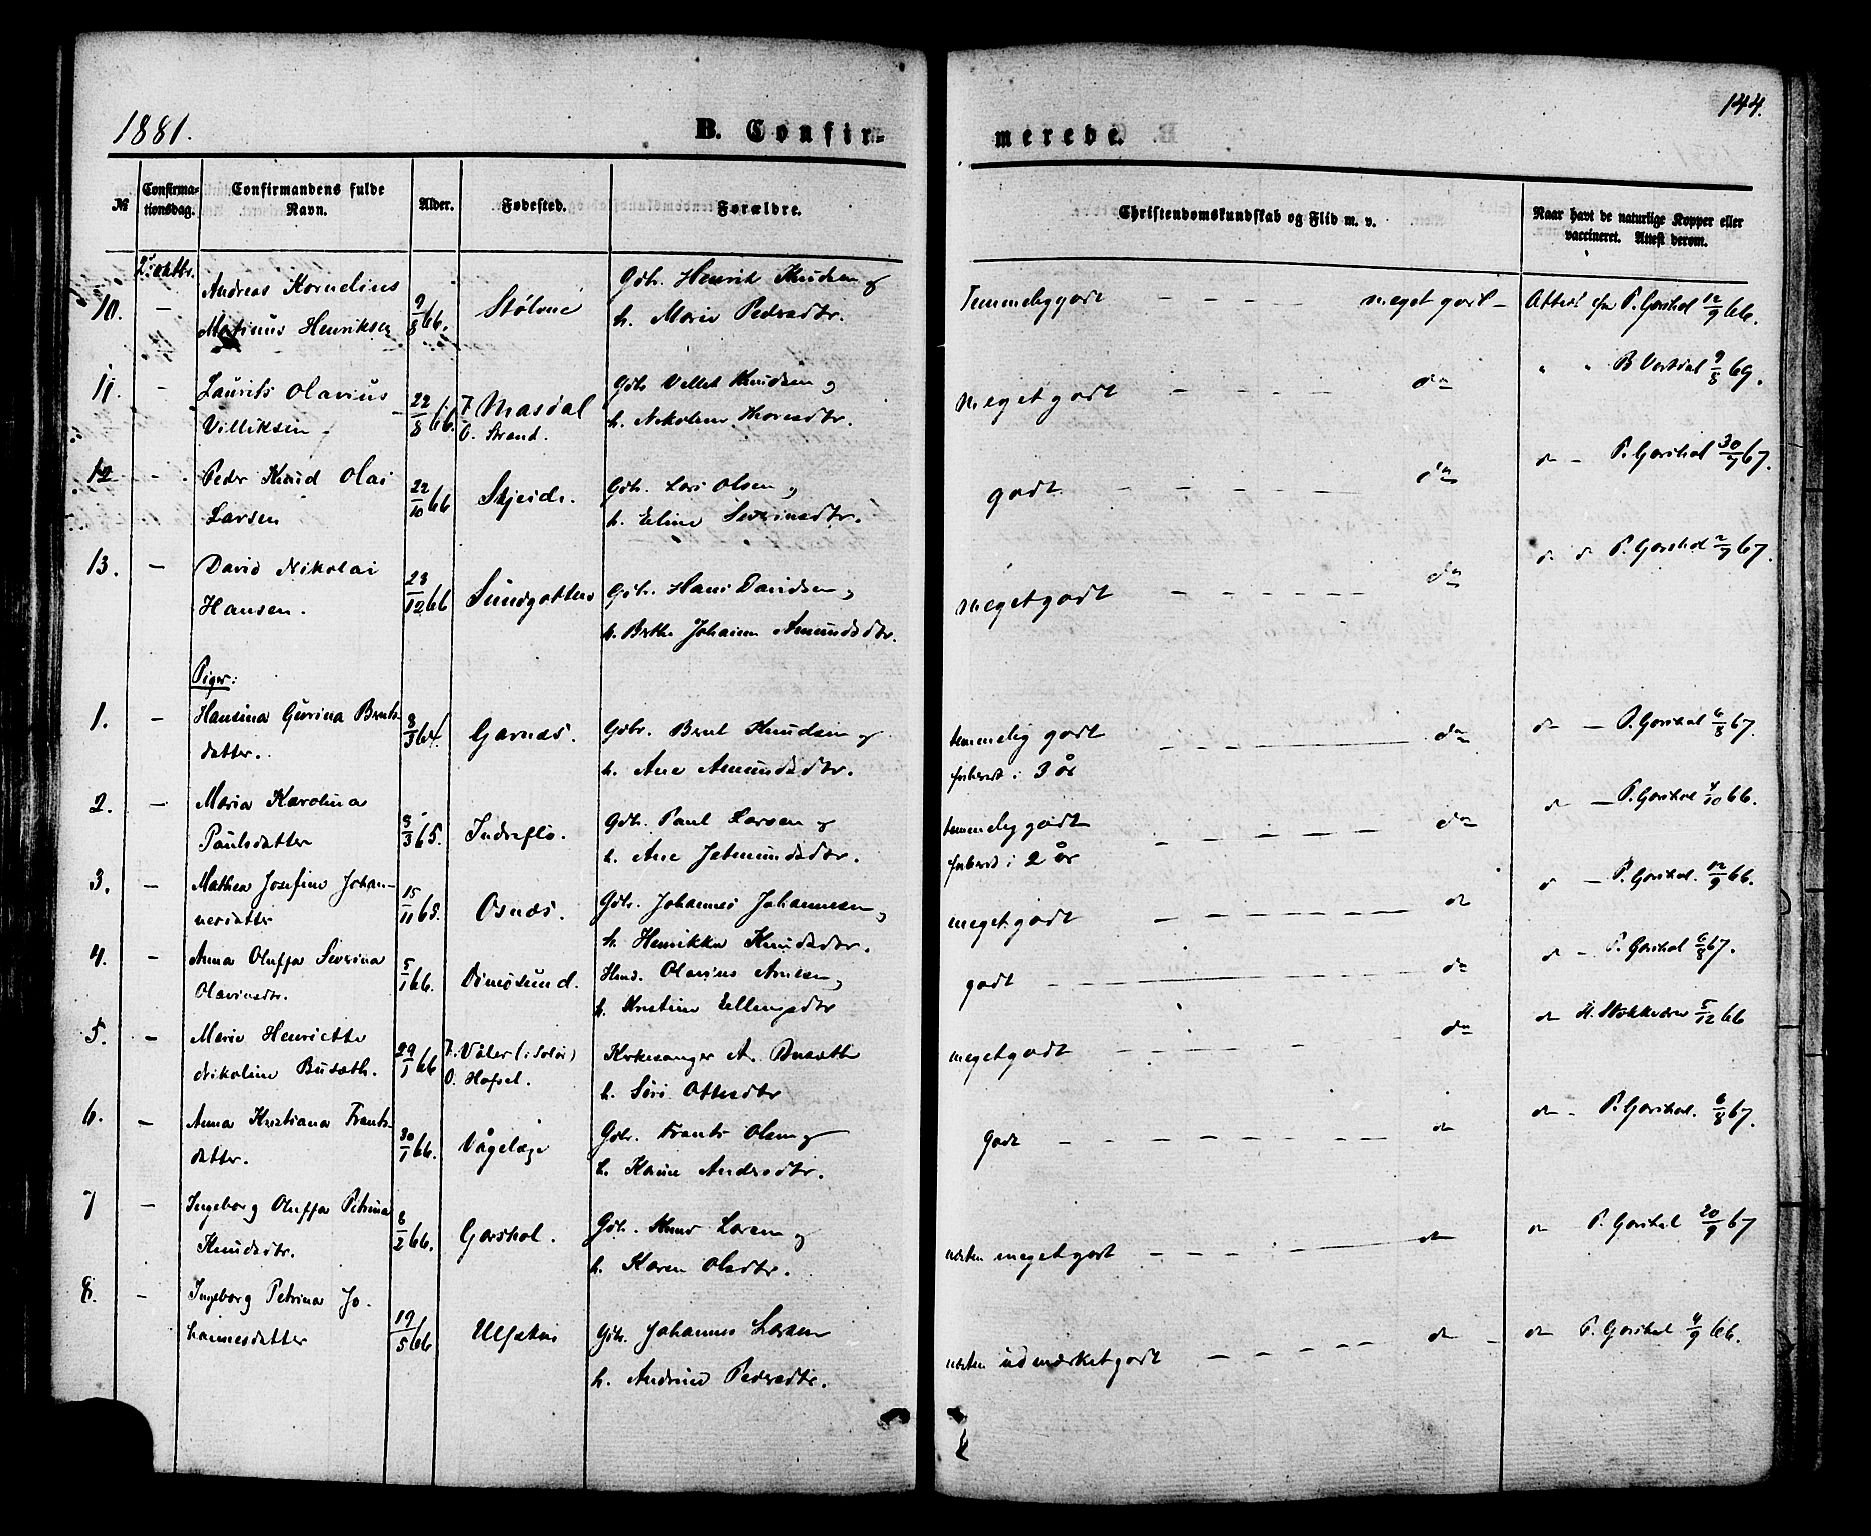 1881.
B. Confir-
merede.
144.
№
Confirma-
tionsdag.
Confirmandens fulde
Navn.
Alder.
Fødested.
Forældre.
Christendomskundskab og Flid m. v.
Naar havt de naturlige Kopper eller
vaccineret. Attest derom.
10. – Andreas Kornelius
Martinus Henriksen 9/8 66. Gdbr. Henrik Knudsen og
h. Marie Pedersdtr. Temmeliggodt – – – meget godt – Attest P. Gorshol 12/9 66.
11. – Laurits Olavius
Villiksen 22/8 66. F. Masdal
O. Strand. Gdbr Knudsen og
h. Nikoline megetgodt – – – do " " B Vestdal 9/8 69.
12 – Peder Knud Olai
Larsen 22/10 66 Skjeide. Gdbr. Lars Olsen og
h. Eline Severinsdtr. godt – – – do do – P. Gorshol 30/7 67.
13. – David Nikolai
Hansen. 23/12 66 Sundgotten Gdbr. Hans Davidsen og
h. Berthe Johanne Amundsdtr. megetgodt – – – do do do P. Gorshol 2/7 67.
Piger:
1. – Hansina Gurina Bernts-
datter. 8/3 64. Garnæs. Gdbr. Bernt Knudsen og
h. Ane Amundsdtr. temmelig godt
forbered i 3 år – – – do do – P. Gorshol 6/8 67.
2. – Maria Karolina
Paulsdatter 9/3 65. Indreflø. Gdbr. Paul Larsen og
h. Ane Jetmundsdtr. temmeliggodt
forbered i 2 år – – – do do – P. Gorshol 4/10 66.
3. – Mathea Josefine Johan-
nesdatter 15/11 65. Osnæs. Gdbr. Johannes Johannesen og
h. Henrikke Knudsdtr. megetgodt – – – do do – P. Gorshol. 12/9 66.
4. – Anna Oluffa Severina
Olavinsdtr. 5/1 66. Dimøsund. Olavius Arnesen og
h. Kristine Ellingsdtr godt – – – do do – P. Gorshol 6/8 67.
5. – Marie Henriette
Nikoline Busæth. 29/1 66 F. Våler (i Solør)
O. Hofset. Kirkesanger A. Busæth
h. Siri Ottesdtr megetgodt – – – do do 5/12 66
6. – Anna Kristiana Frants-
datter. 30/1 66. Vågelage Gdbr. Frants Olsen og
h. Karine Andersdtr. Godt – – – do do – P. Gorshol. 6/8 67.
7 – Ingeborg Oluffa Petrina
Knudsdtr. 8/2 66. Gorshol. Gdbr. Knud Larsen og
h. Karen Olsdtr. næsten megetgodt – – – do do P. Gorshol 20/9 67
8. – Ingeborg Petrina Jo-
hannesdatter 19/5 66 Ulfsten Gdbr. Johannes Larsen
h. Andrine Pedersdtr. næsten udmærketgodt – – – do – do P. Gorshol 4/9 66.